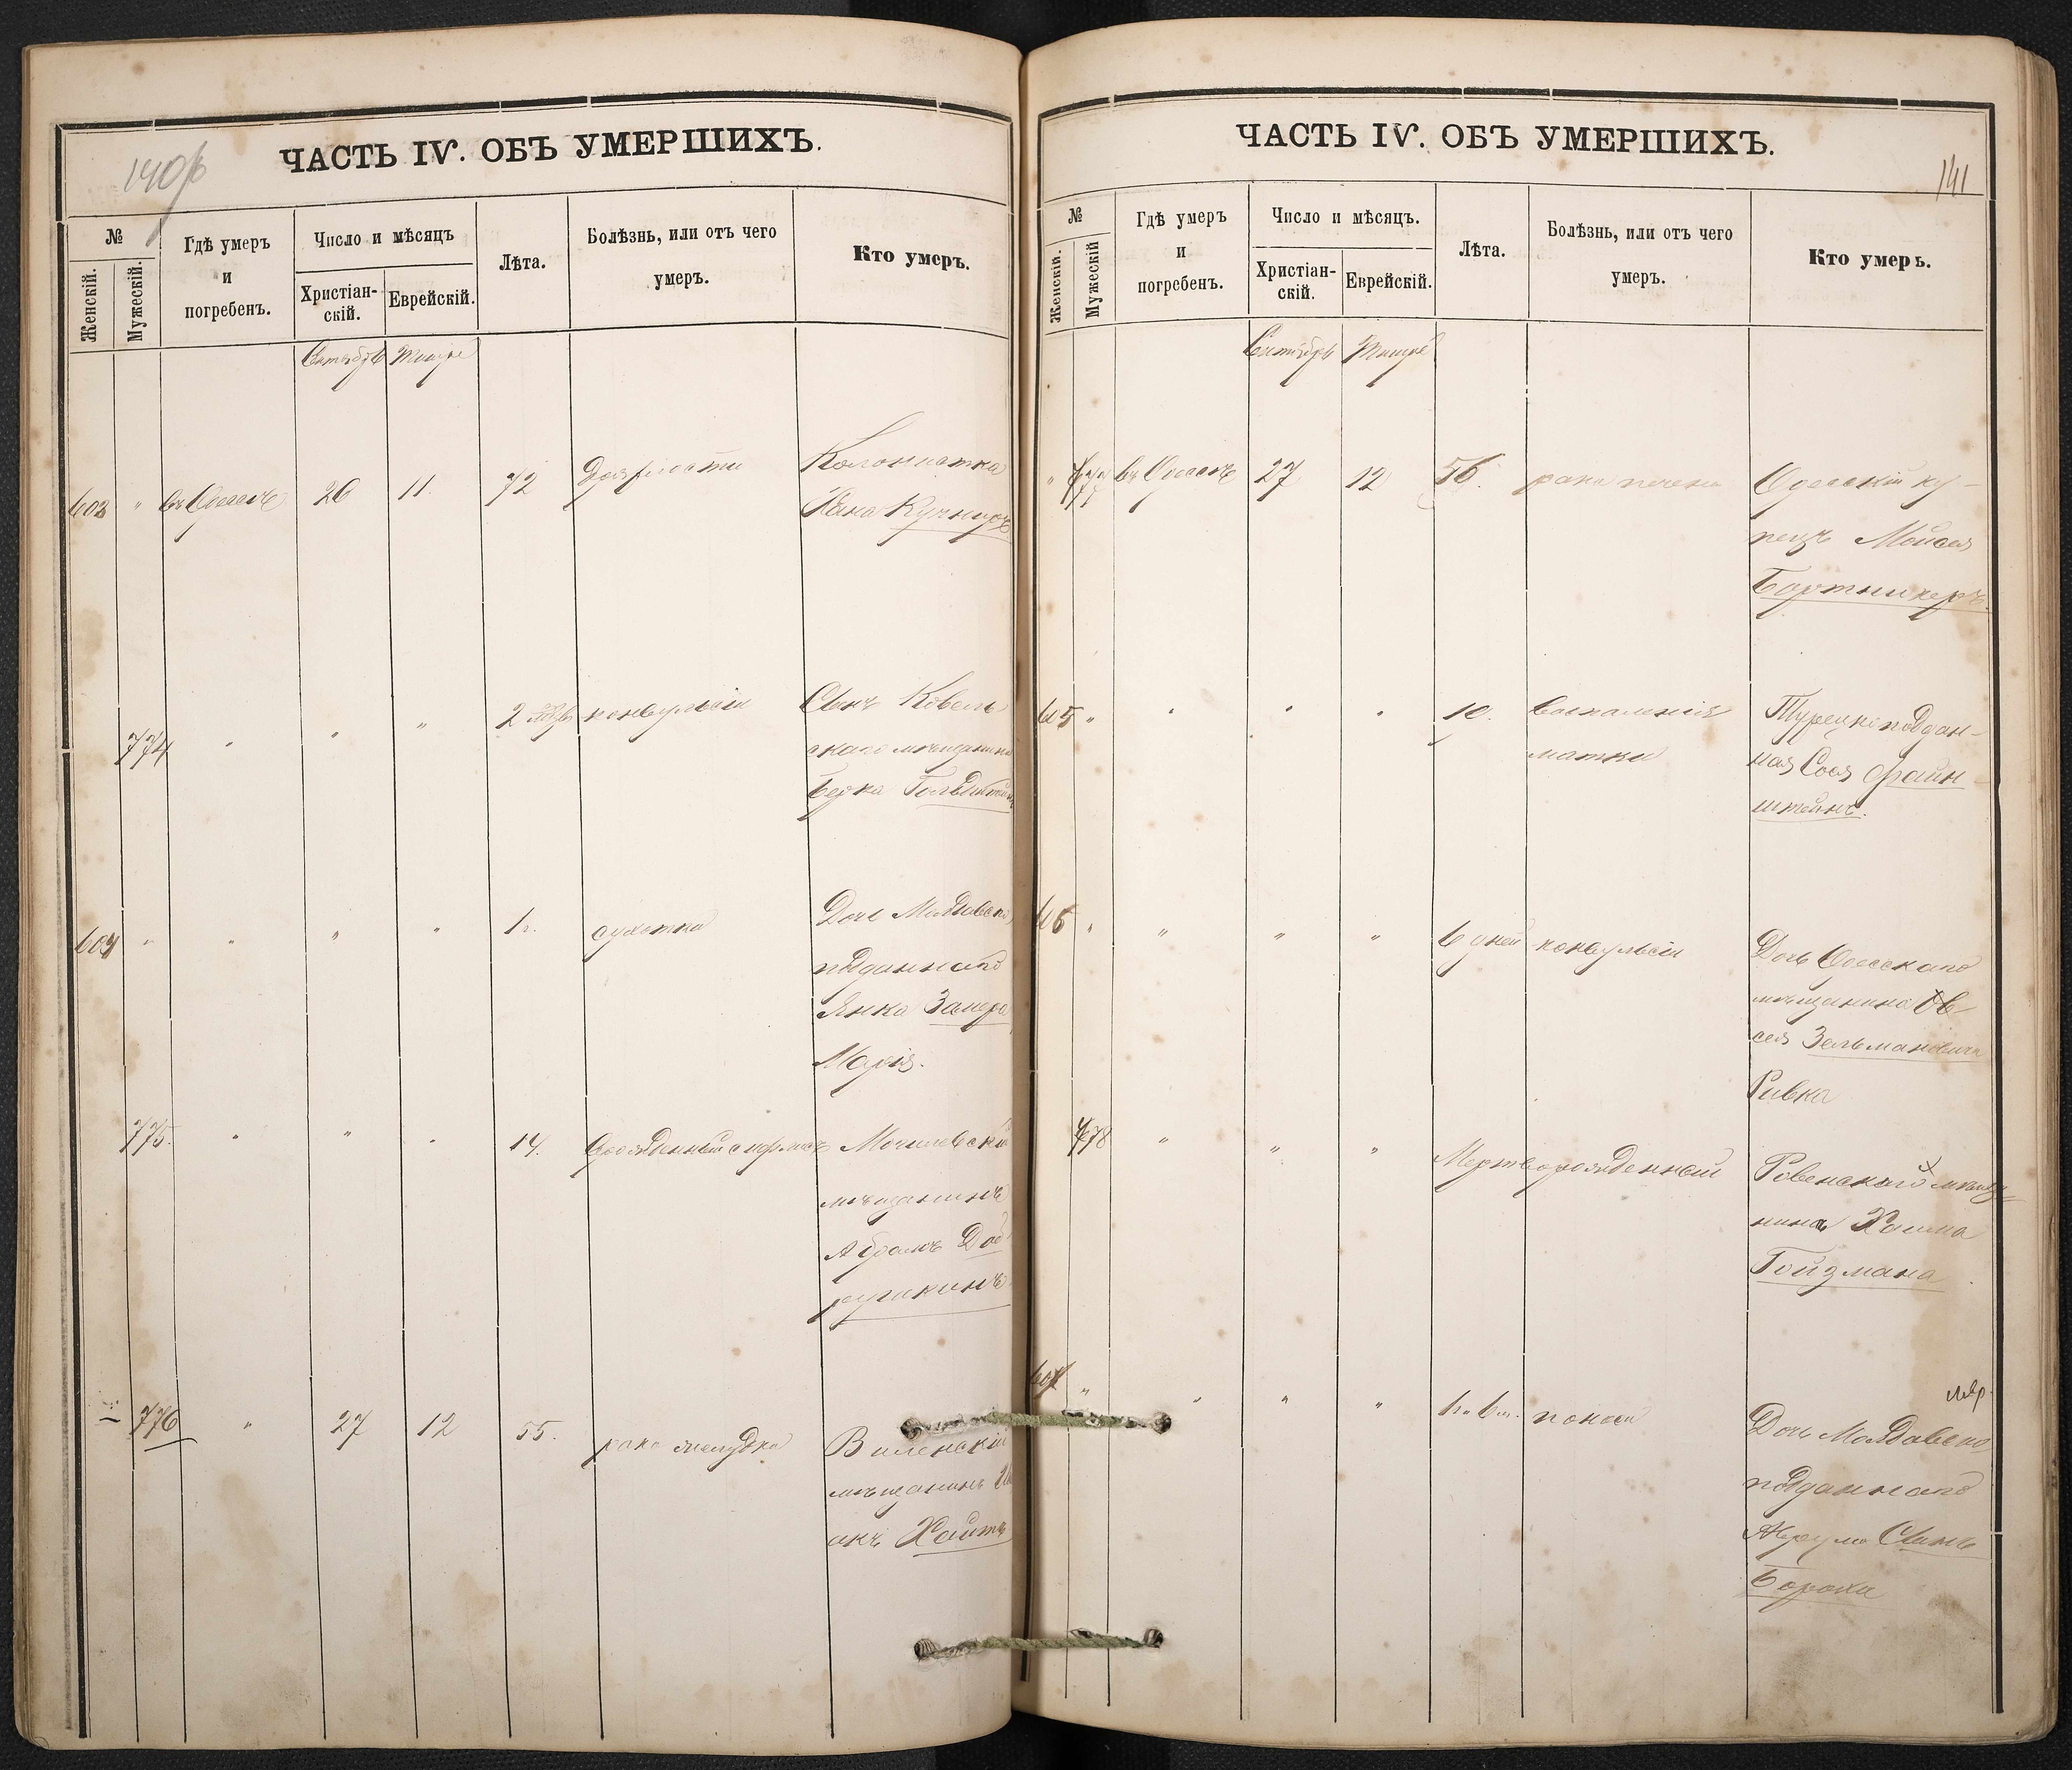 140/б
ЧАСТЬ IV. ОБЪ УМЕРШИХЪ.
№
Женскій.
Мужескій.
Гдѣ умеръ
и
погребенъ.
Число и мѣсяцъ
Христіан-
скій.
Еврейскій.
Лѣта.
Болѣзнь, или отъ чего
умеръ.
Кто умеръ.
Сентябрь Тишре
603 " въ Одессѣ 26 11. 72 Дряхлости Колонистка
Хана Кучниръ
774 " " " 2 конвульсіи Сынъ Ковель
скаго мѣщанина
Берка Гольдштейнъ
604 " " " " 1 г. сухотка Дочь Молдавско
подданнаго
Янка Замера
Марія.
775. " " " 14. Могилевскій
мѣщанинъ
Абрамъ Доб
рушкинъ
776 " 27 12 55. рака желудка Виленскій
мѣщанинъ
Хаитъ
141
ЧАСТЬ IV. ОБЪ УМЕРШИХЪ.
№
Женскій.
Мужескій
Гдѣ умеръ
и
погребенъ.
Число и мѣсяцъ.
Христіан-
скій.
Еврейскій.
Лѣта.
Болѣзнь, или отъ чего
умеръ.
Кто умеръ.
Сентябрь Тишре
" 777 въ Одессѣ 27 12 56. рака печени Одесскій ку-
пецъ Мойсей
Бортникеръ.
605 " " " " воспаленія Турецкоподдан-
матки ная Сося Файн-
штейнъ.
606 " " " " 6 дней конвульсіи Дочь Одесскаго
мѣщанина Ов-
сея Зельмановича
Ривка
778 " " " Мертворожденный Ровенскаго мѣща
нина Хаима
Гойзмана
607 " " " " поноса Дочь Молдавско
подданнаго
Сланъ
Борохи